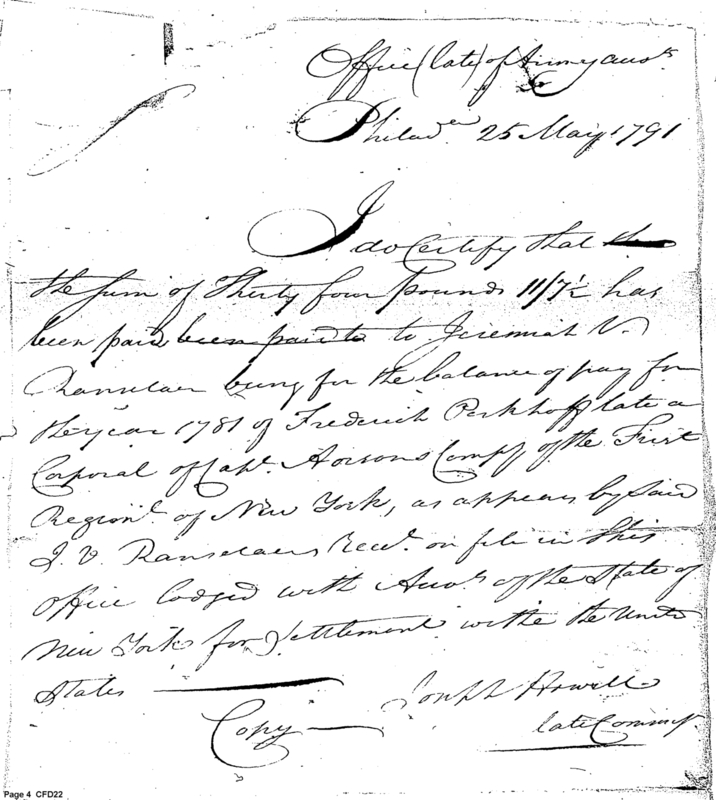 Office (late) of Army accots
Philada 25 May 1791
I do Certify that the
the sum of Thirty four Pounds 11/7½ has
been paid been paid to to Jeremiah V.
Ranselaer being for the balance of pay for
the year 1781 of Frederick Perkhoff late a
Corporal of Capt. Compy of the First
Regimt. of New York, as appears by said
J. V. Ranselaers Rect. on file in this
office lodged with Accots of the State of
New York for Settlement with the United
States
Joseph Howell
Copy
late Commr.
Page 4 CFD22